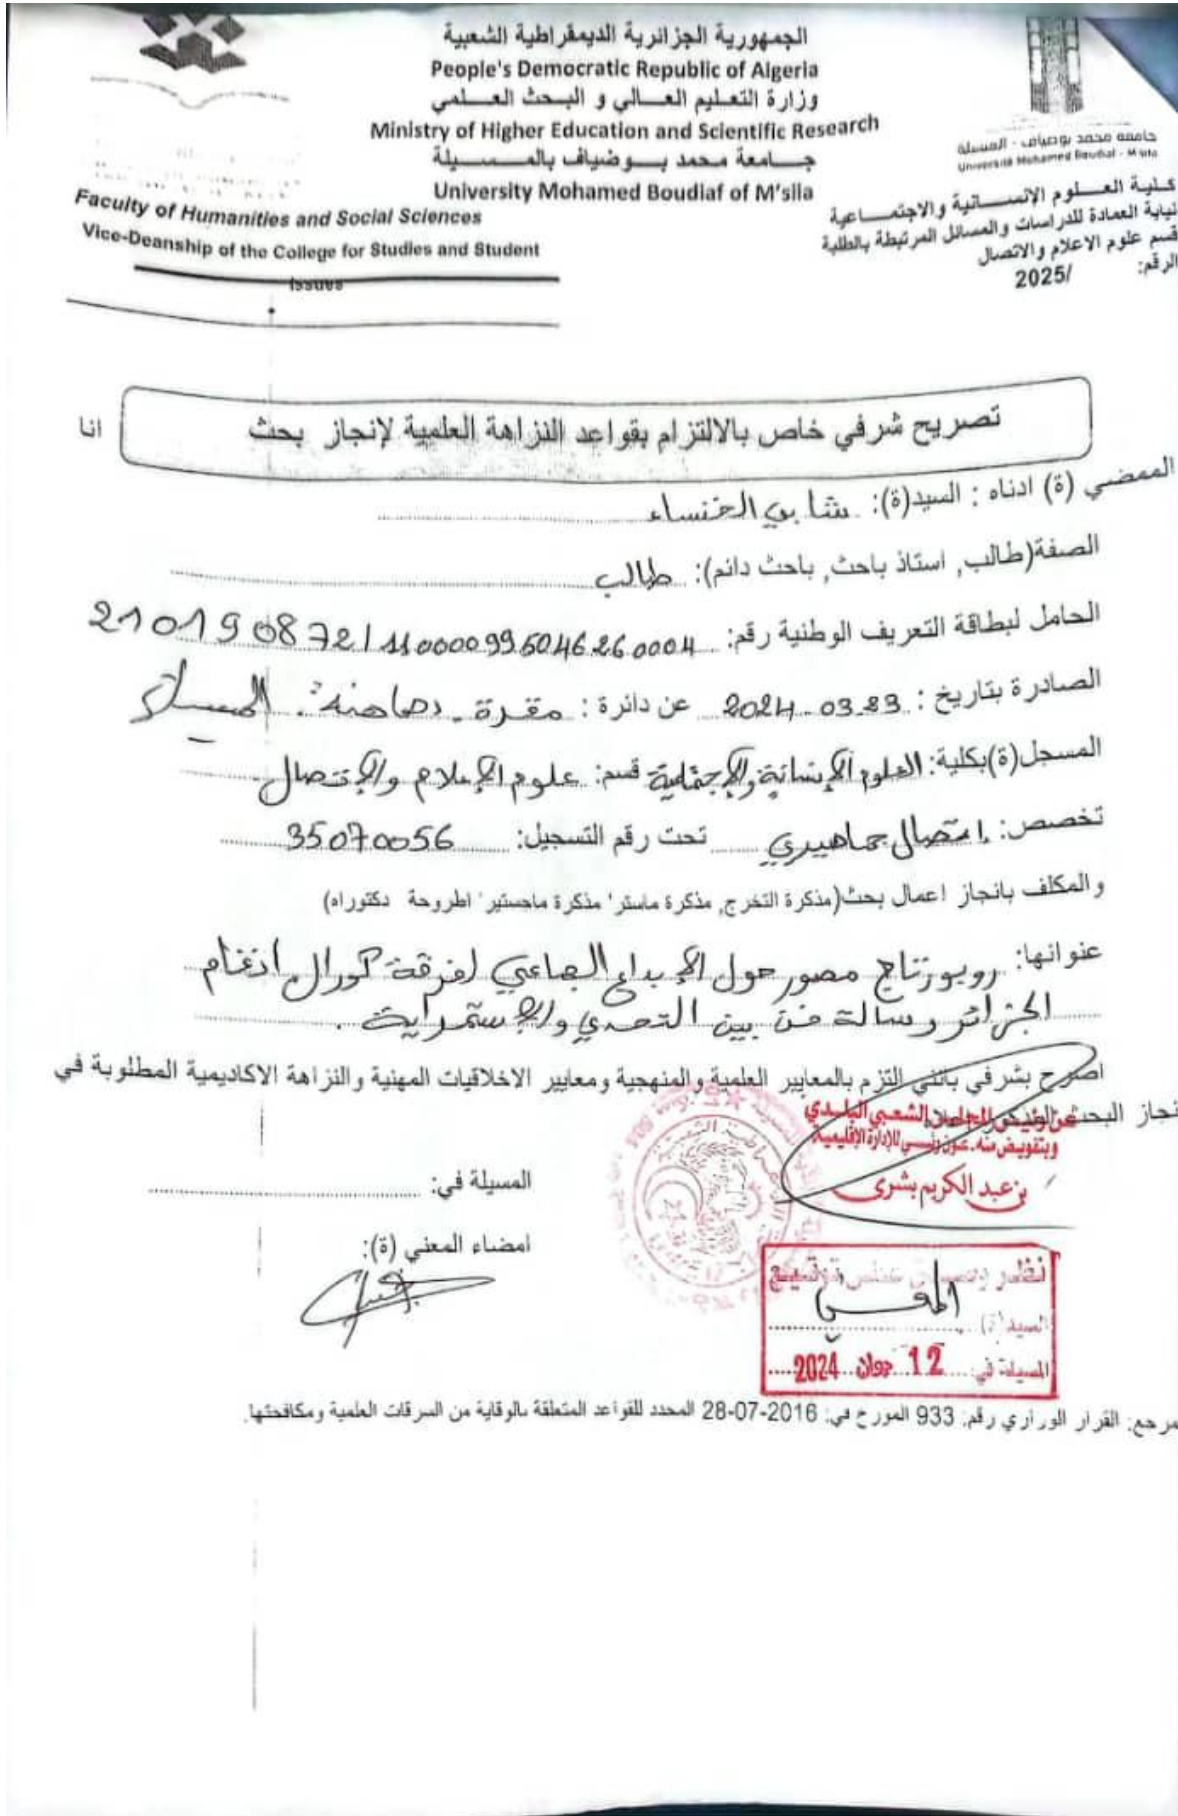 الجمهورية الجزائرية الديمقراطية الشعبية
People's Democratic Republic of Algeria
وزارة التعليم العـــالي و البـحث العـــلمي
Ministry of Higher Education and Scientific Research
جـــامعة محمد بـــوضياف بالمـــسيلة
University Mohamed Boudiaf of M'sila
جامعة محمد بوضياف - المسيلة
Université Mohamed Boudiaf - M'sila
Faculty of Humanities and Social Sciences
Vice-Deanship of the College for Studies and Student
Issues
كـلـية العـــلوم الإنســـانية والاجتمـــاعية
نيابة العمادة للدراسات والمسائل المرتبطة بالطلبة
قسم علوم الاعلام والاتصال
الرقم: /2025
تصريح شرفي خاص بالالتزام بقواعد النزاهة العلمية لإنجاز بحث
انا
الممضي (ة) ادناه : السيد(ة): شابي الخنساء
الصفة(طالب, استاذ باحث, باحث دائم): طالب
الحامل لبطاقة التعريف الوطنية رقم: 210190872/110000995046260004
الصادرة بتاريخ : 2024.03 عن دائرة : مقرة المسيلة
المسجل(ة)بكلية: العلوم الإنسانية والإجتماعية قسم: علوم الإعلام والإتصال
تخصص: إتصال جماهيري تحت رقم التسجيل: 35070056
والمكلف بانجاز اعمال بحث(مذكرة التخرج, مذكرة ماستر' مذكرة ماجستير' اطروحة دكتوراه)
عنوانها: روبورتاج مصور حول الإبداع الجماعي لفرقة كورال أنغام
الجزائر رسالة فن بين التحدي والإستمراية.
اصرح بشرفي بانني التزم بالمعايير العلمية والمنهجية ومعايير الاخلاقيات المهنية والنزاهة الاكاديمية المطلوبة في
نجاز البحث المذكور
عن رئيس المجلس الشعبي البلدي
وبتفويض منه. عون رئيسي للإدارة الإقليمية
بن عبد الكريم بشرى
المسيلة في:
امضاء المعني (ة):
نظر وصدق على توقيع
المعني
السيد (ة)
المسيلة في 12 جوان 2024
مرجع: القرار الوزاري رقم: 933 المورخ في: 2016-07-28 المحدد للقواعد المتعلقة بالوقاية من السرقات العلمية ومكافحتها.